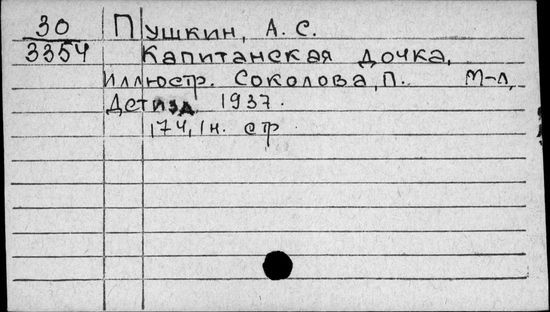 30 Пушкин, А. С.
3354 Капитанская дочка,
Иллюстр. Соколова, П. М-Л,
Детизд 1937.
174, 1н. стр